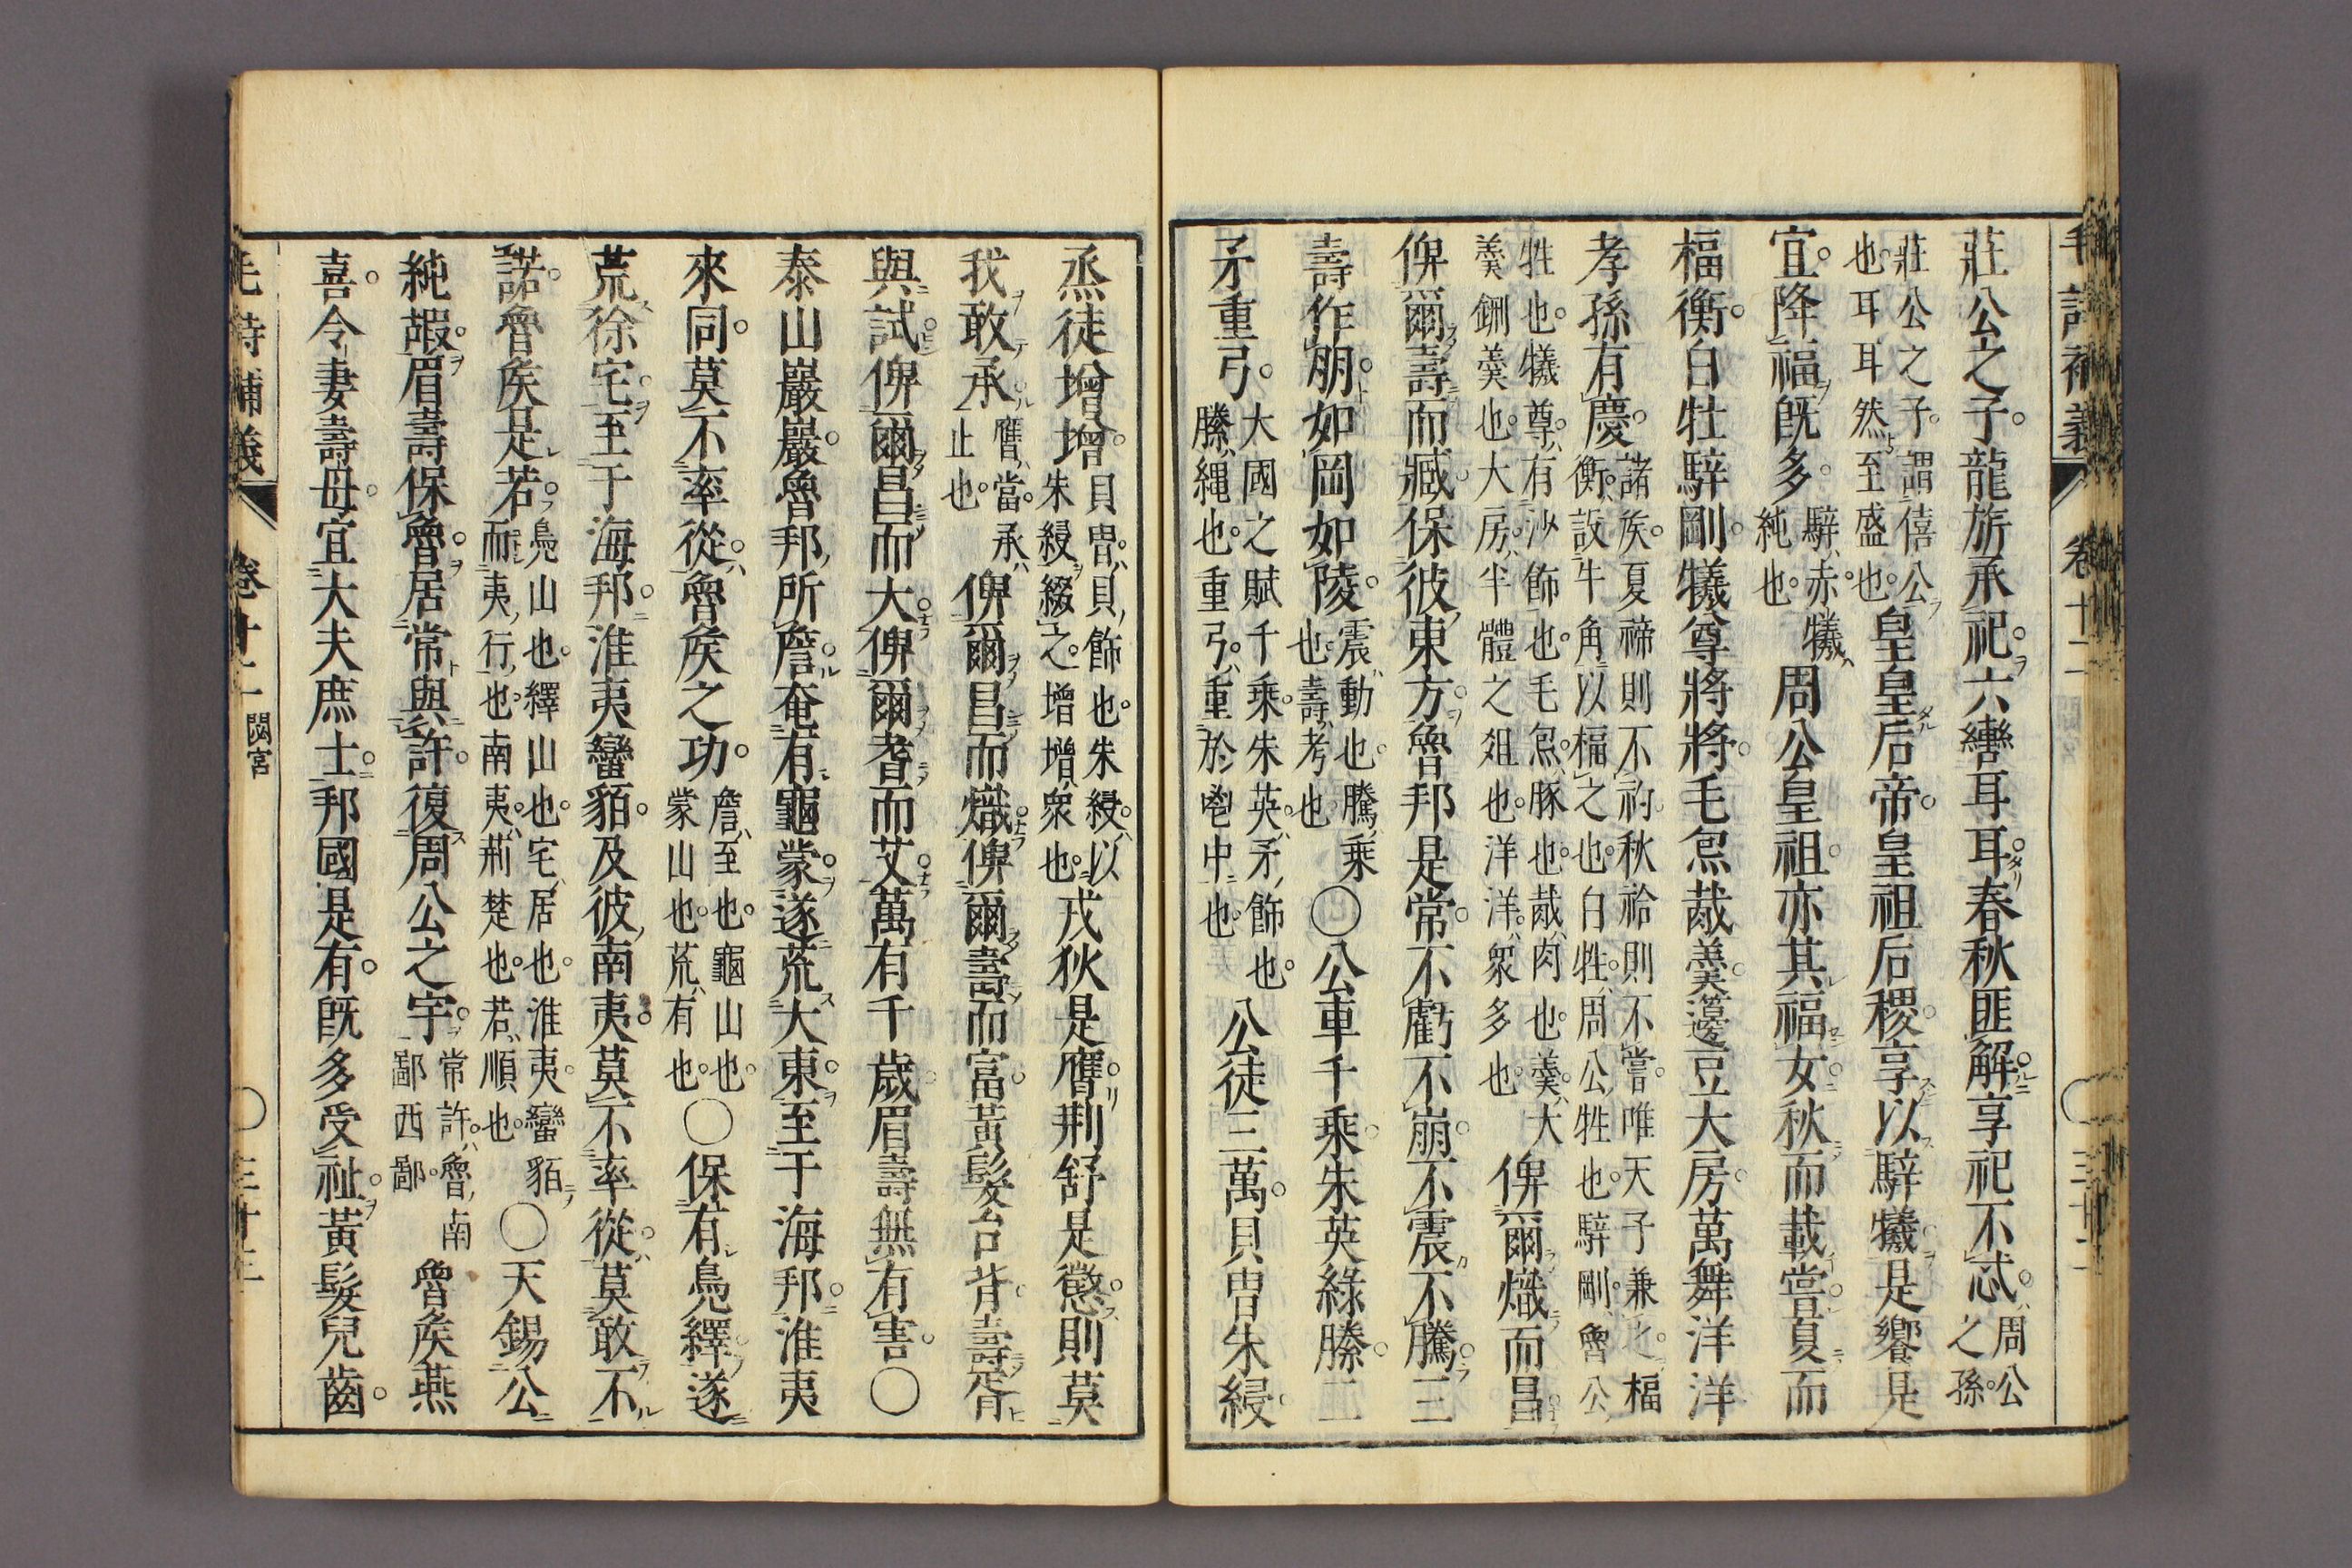 毛詩補義 卷十二 三十二
莊公之子龍旂承祀六轡耳耳春秋匪解享祀不忒周公之孫
莊公之子謂僖公也耳耳然至盛也皇皇后帝皇祖后稷享以騂犧是饗是
宜降福既多騂赤犧純也周公皇祖亦其福女秋而載嘗夏而
福衡白牡騂剛犧尊將將毛炰胾羹籩豆大房萬舞洋洋
孝孫有慶諸矦夏禘則不礿秋祫則不嘗唯天子兼之楅衡設牛角以楅之也白牲周公牲也騂剛魯公
牲也犧尊有沙飾也毛炰豚也胾肉也羹大羹鉶羹也大房半體之俎也洋洋衆多也俾爾熾而昌
俾爾壽而臧保彼東方魯邦是常不虧不崩不震不騰三
壽作朋如岡如陵震動也騰乘也壽考也〇公車千乘朱英綠縢二
矛重弓大國之賦千乘朱英矛飾也縢繩也重弓重於鬯中也公徒三萬貝冑朱綅
烝徒增增貝冑貝飾也朱綅以朱綅綴之增增衆也戎狄是膺荆舒是懲則莫
我敢承膺當承止也俾爾昌而熾俾爾壽而富黃髮台背壽胥
與試俾爾昌而大俾爾耆而艾萬有千歲眉壽無有害〇
泰山巖巖魯邦所詹奄有龜蒙遂荒大東至于海邦淮夷
來同莫不率從魯矦之功詹至也龜山也蒙山也荒有也〇保有鳧繹遂
荒徐宅至于海邦淮夷蠻貊及彼南夷莫不率從莫敢不
諾魯矦是若鳧山也繹山也宅居也淮夷蠻貊而夷行也南夷荊楚也若順也〇天錫公
純嘏眉壽保魯居常與許復周公之宇常許魯南鄙西鄙魯矦燕
喜令妻壽母宜大夫庶士邦國是有既多受祉黃髮兒齒
毛詩補義 卷十二 閟宮 〇三十三